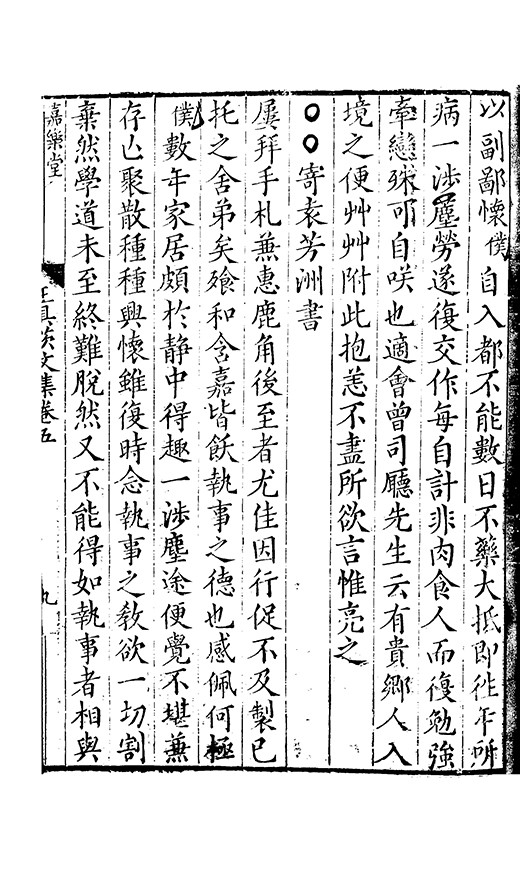 以副鄙懷僕自入都不能數日不藥大抵即徃年所
病一涉塵勞遂復交作每自計非肉食人而復勉強
牽戀殊可自咲也適會曾司廳先生云有貴鄉人入
境之便艸艸附此抱恙不盡所欲言惟亮之
○○寄袁芳洲書
屢拜手札兼惠鹿角後至者尤佳因行促不及製已
托之舍弟矣飱和含嘉皆飫執事之德也感佩何極
僕數年家居頗於静中得趣一涉塵途便覺不堪兼
存亡聚散種種興懷雖復時念執事之敎欲一切割
棄然學道未至終難脫然又不能得如執事者相與
嘉樂堂
王具茨文集卷五
九